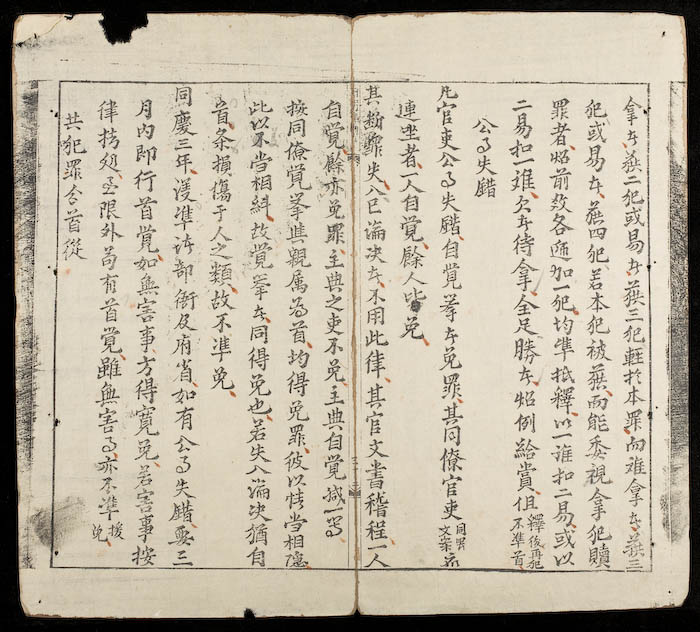 拿者獲二犯或易者獲三犯輕於本罪而难拿者獲三
犯或易者獲四犯若本犯被獲而能委視拿犯贖
罪者炤前数各逓加一犯均準抵釋以一难扣二易或以
二易扣一难欠者待拿全足勝者炤例給賞但釋後再犯不準首
公事失錯
凡官吏公事失錯自覺舉者免罪其同僚官吏同署文案
連坐者一人自覺餘人皆免
其断罪失入已論决者不用此律其官文書稽程一人
自覺餘亦免罪主典之吏不免主典自覺减一等
按同僚覺舉與親属為首均得免罪彼以情當相隱
此以不當相糾故覺舉者同得免也若失入論决猶自
首条損傷于人之類故不準免
同慶三年議準諸部衙及府省如有公事失錯要三
月内即行首覺如無害事方得寬免若害事按
律擬処至限外苟有首覺雖無害事亦不準援免
共犯罪分首從